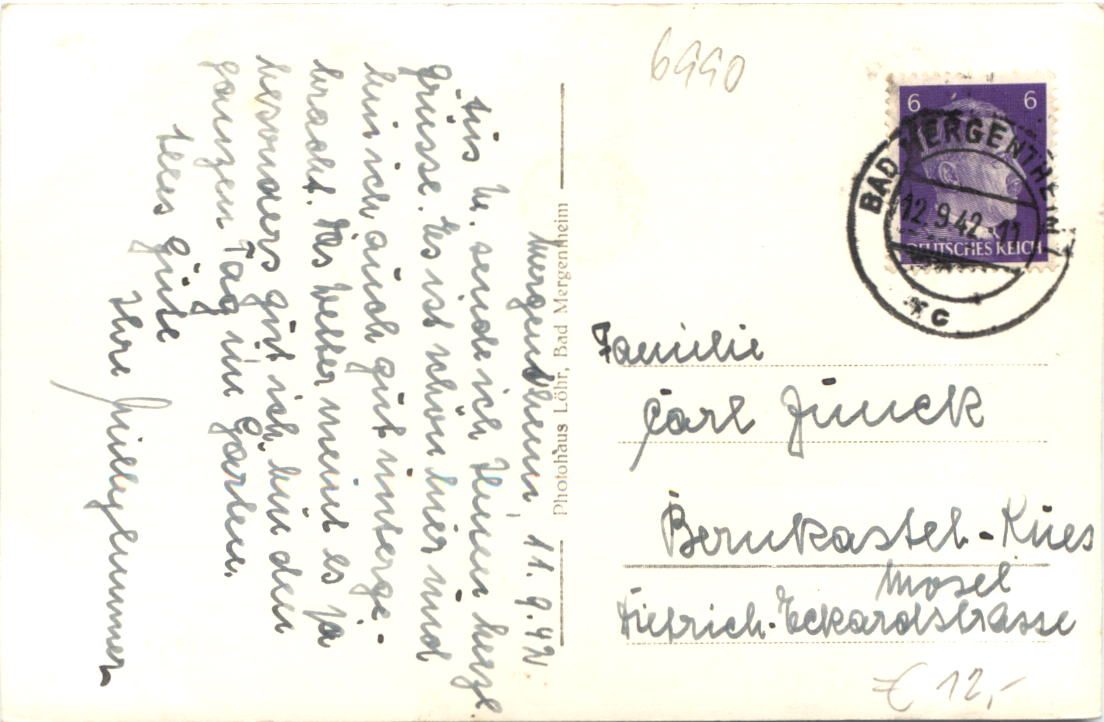 Mergentheim, 11.9.42
Aus M. sende ich Ihnen herzl.
Grüsse. Es ist schön hier und
bin ich auch gut unterge-
bracht. Das Wetter meint es ja
besonders gut, ich bin den
ganzen Tag im Garten.
Alles Gute
Ihre
Photohaus Löhr, Bad Mergenheim
6990
6 6
DEUTSCHES REICH
BAD MERGENTHEIM
12.9.42.11
c
Familie
Carl Junck
Bernkastel-Kues
Mosel
Dietrich-Eckardstrasse
€ 12,-